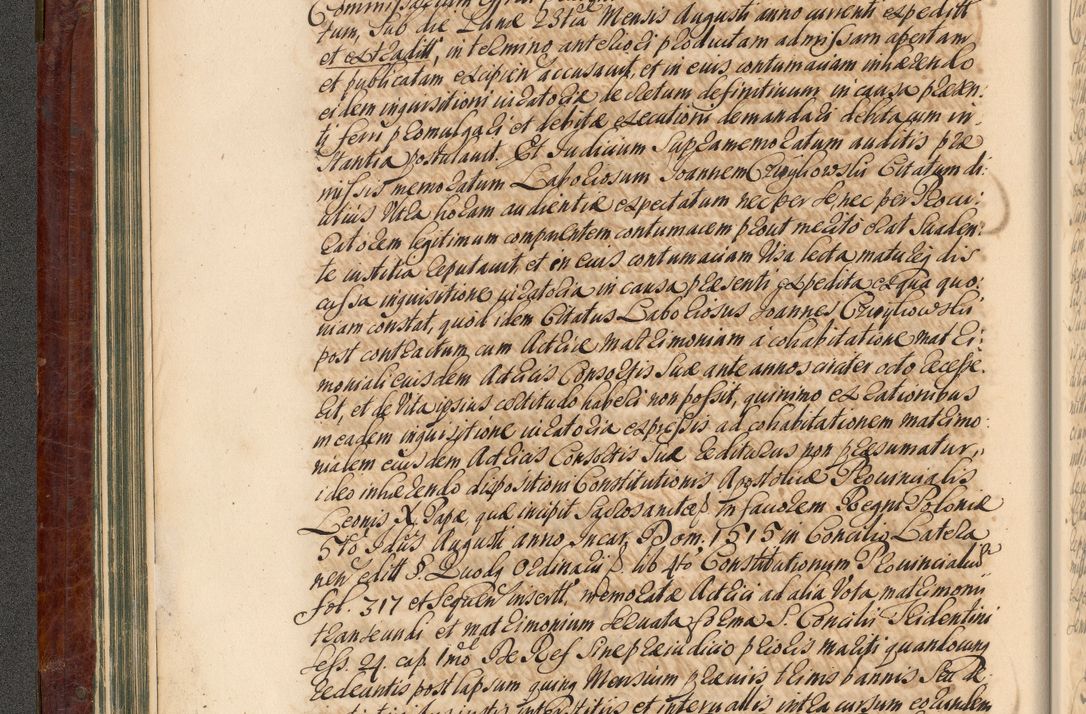 tum, Sub die Lunae 23tia Mensis Augusti anno currenti expeditt
et extraditt, in termino anteriori productam admissam apertam
et publicatam excipien accusavit, et in eius contumaciam inhaerendo
eidem inquisitioni iuratoriae decretum definitivum in causa praesen:
ti ferri promulgari et debitae executioni demandari debita cum in:
stantia postulavit. Et Iudicium Supramemoratum auditis prae
missis memoratum Laboriosum Joannem Citatum di:
utius Ultra horam audientiae expectatum nec per se, nec per Procu:
ratorem legitimum comparentem contumacem prout merito erat Suaden:
te iustitia reputavit, et in eius contumaciam Visa lecta matureq dis
cussa inquisitione iuratoria in causa praesenti expedita ex qua quo:
niam constat, quod idem Citatus Laboriosus Joannes
post contractum cum Actrice matrimonium a cohabitatione matri:
moniali eiusdem Actricis Consortis Suae ante annos circiter octo recesse:
rit, et de Vita ipsius certitudo haberi non possit, quinimo ex rationibus
in eadem inquisitione iuratoria expressis ad cohabitationem matrimo:
nialem eiusdem Actricis Consortis Suae rediturus non praesumatur,
ideo inhaerendo dispositioni Constitutionis Apostolicae Provincialis
Leonis X. Papae, quae incipit Sacrosanctae in favorem Regni Poloniae
5to Idus Augusti anno Incar. Dom. 1515 in Concilio Latera
nen editt §. Quodq Ordinarii lib 4to Constitutionum Provincialiu
fol. 317 et sequen insertt, memoratae Actrici ad alia Vota matrimonii
transeundi et matrimonium servata forma S. Concilii Tridentini
Sess. 24. cap. 1mo De Ref Sine praeiudicio prioris mariti quandocunq
redeuntis, post lapsum Mensium praeviis trinis bannis Seu de:
et intervallis intra cursum eorundem